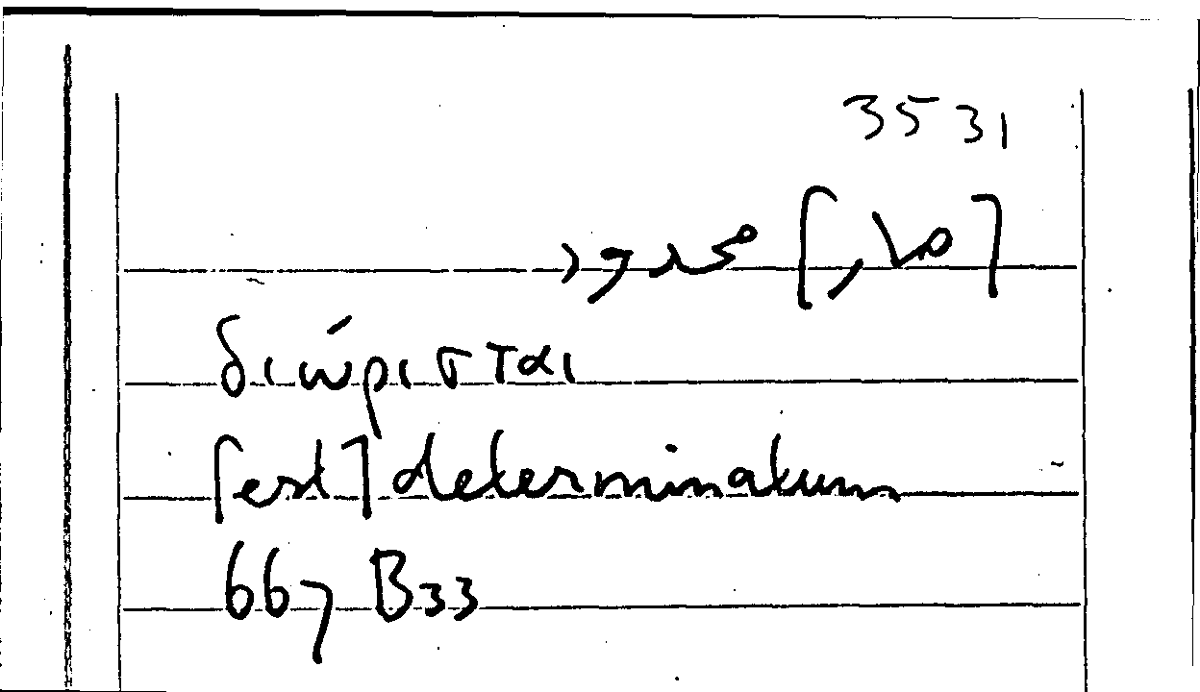 3531
[صار] محدود
διώρισται
[est] determinatum
667 B33